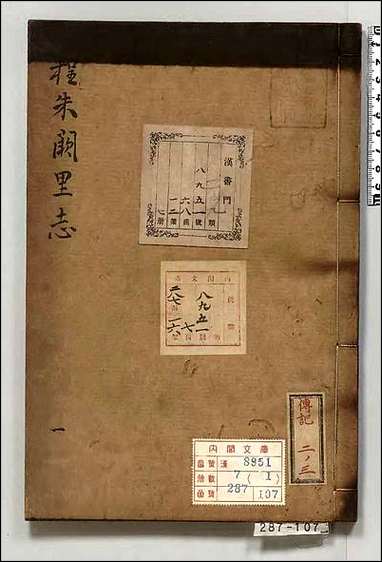 程朱闕里志
一
漢書門
類
八九五一號
六八函
一二架
七冊
内閣文庫
八九五一
七
二八七
一六
傳記
二ノ三
内閣文庫
番號 漢 8951
冊數 7 (1)
函號 287 107
287-107